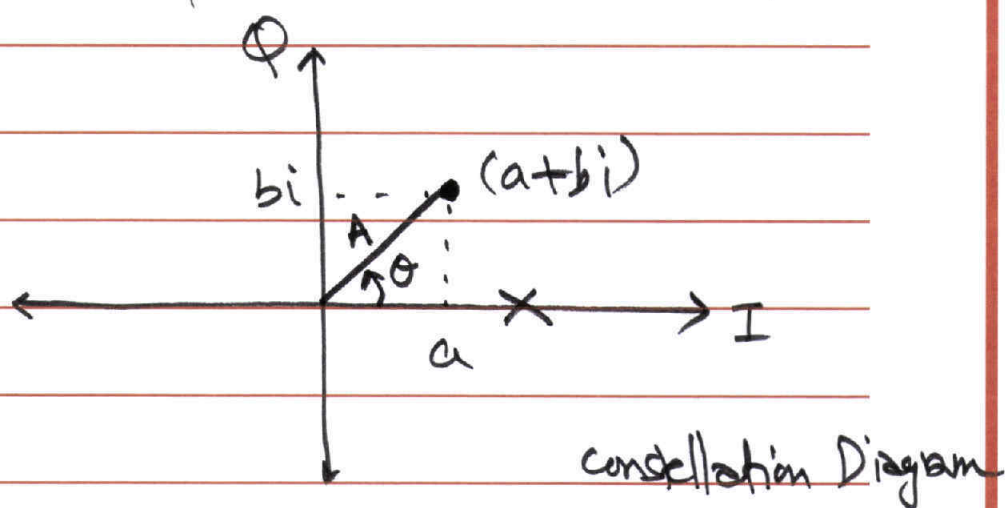 Q
bi
(a+bi)
A
θ
a
I
constellation Diagram